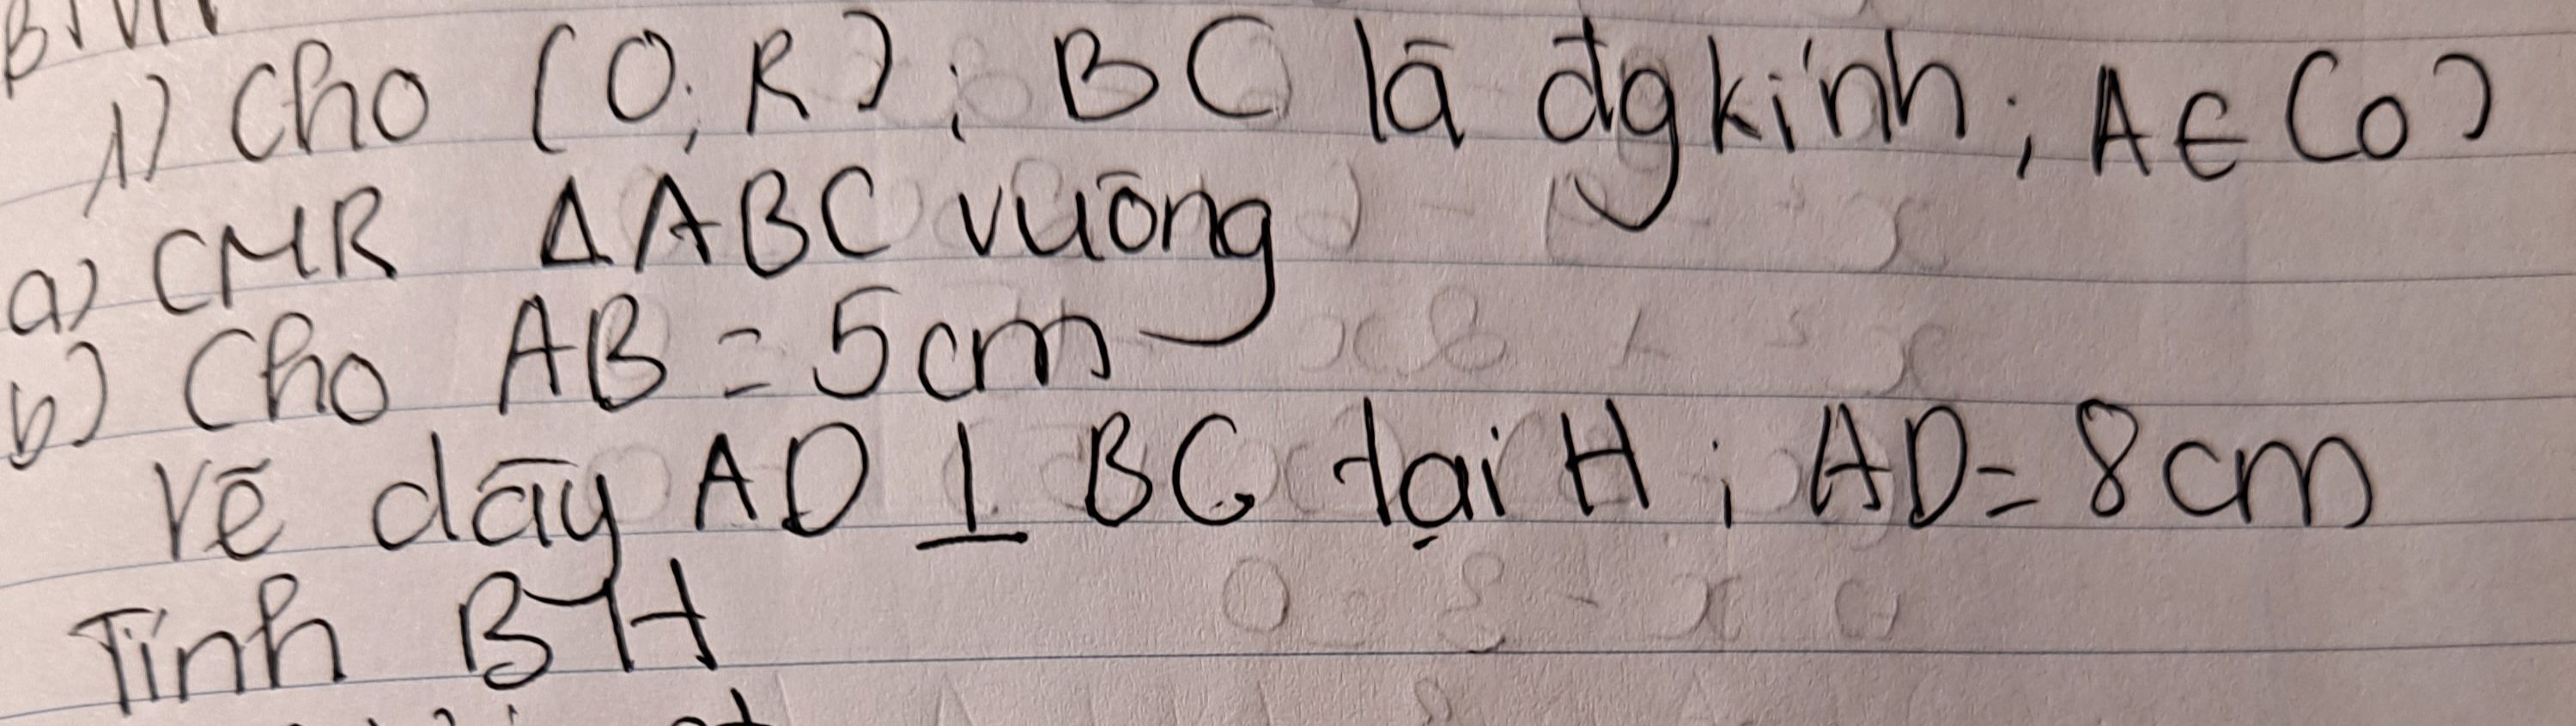 1) Cho (O; R); BC là đg kính; A ∈ (O)
a) CMR ΔABC vuông
b) Cho AB = 5cm
Vẽ dây AD ⊥ BC tại H; AD = 8cm
Tính BH